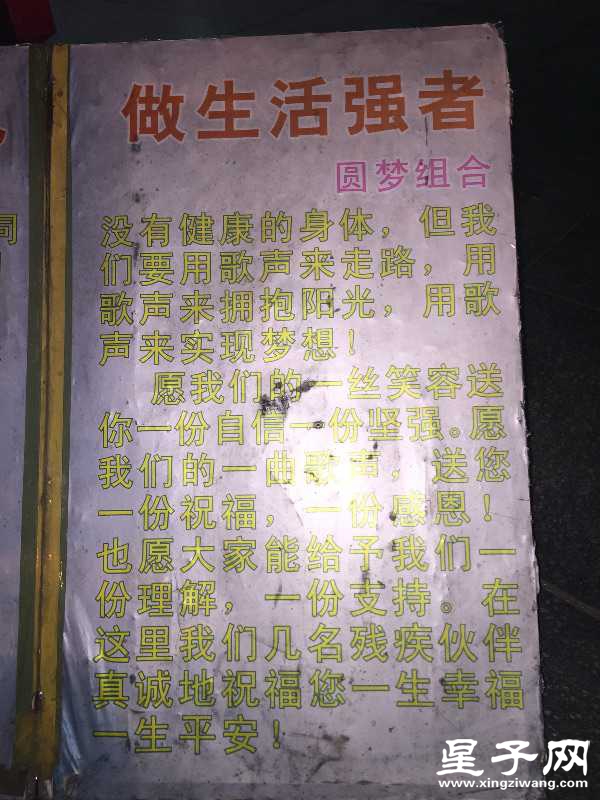 做生活强者
圆梦组合
没有健康的身体，但我
们要用歌声来走路，用
歌声来拥抱阳光，用歌
声来实现梦想！
愿我们的一丝笑容送
你一份自信一份坚强。愿
我们的一曲歌声，送您
一份祝福，一份感恩！
也愿大家能给予我们一
份理解，一份支持。在
这里我们几名残疾伙伴
真诚地祝福您一生幸福
一生平安！
同
星子网
www.xingziwang.com